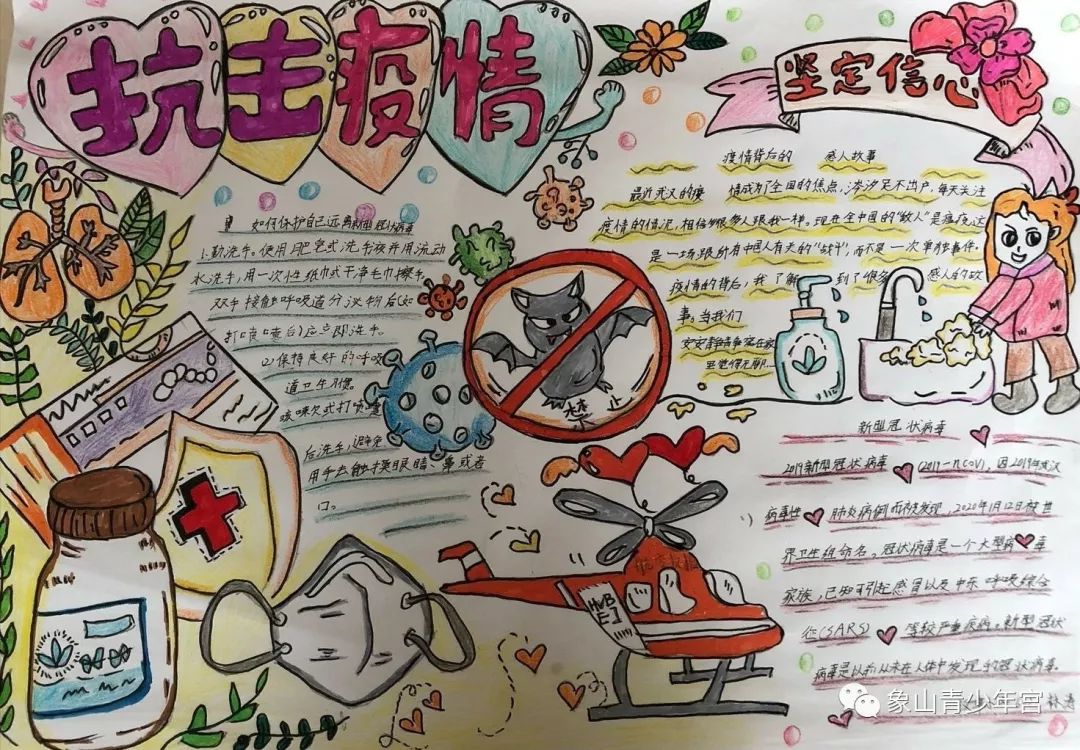 抗击疫情
坚定信心
如何保护自己远离新型冠状病毒
1.勤洗手。使用肥皂或洗手液并用流动
水洗手,用一次性纸巾或干净毛巾擦手。
双手接触呼吸道分泌物后(如
打喷嚏后)应立即洗手。
2)保持良好的呼吸
道卫生习惯。
咳嗽或打喷嚏
后洗手,避免
用手去触摸眼睛、鼻或者
口。
疫情背后的 感人故事
最近武汉的疫 情成为了全国的焦点,涔汐足不出户,每天关注
疫情的情况,相信很多人跟我一样。现在全中国的“敌人”是瘟疫,这
是一场跟所有中国人有关的“战争”,而不是一次单独事件.
疫情的背后,我了解 到了很多 感人的故
事,当我们
安安静静
且觉得无聊...
禁止
新型冠状病毒
2019新型冠状病毒 (2019-nCoV),因2019年武汉
病毒性 肺炎病例而被发现,2020年1月12日被世
界卫生组命名。冠状病毒是一个大型病毒
家族,已知可引起感冒以及中东呼吸综合
征(SARS) 等较严重疾病。新型冠状
病毒是以前从未在人体中发现的冠状病毒.
象山青少年宫